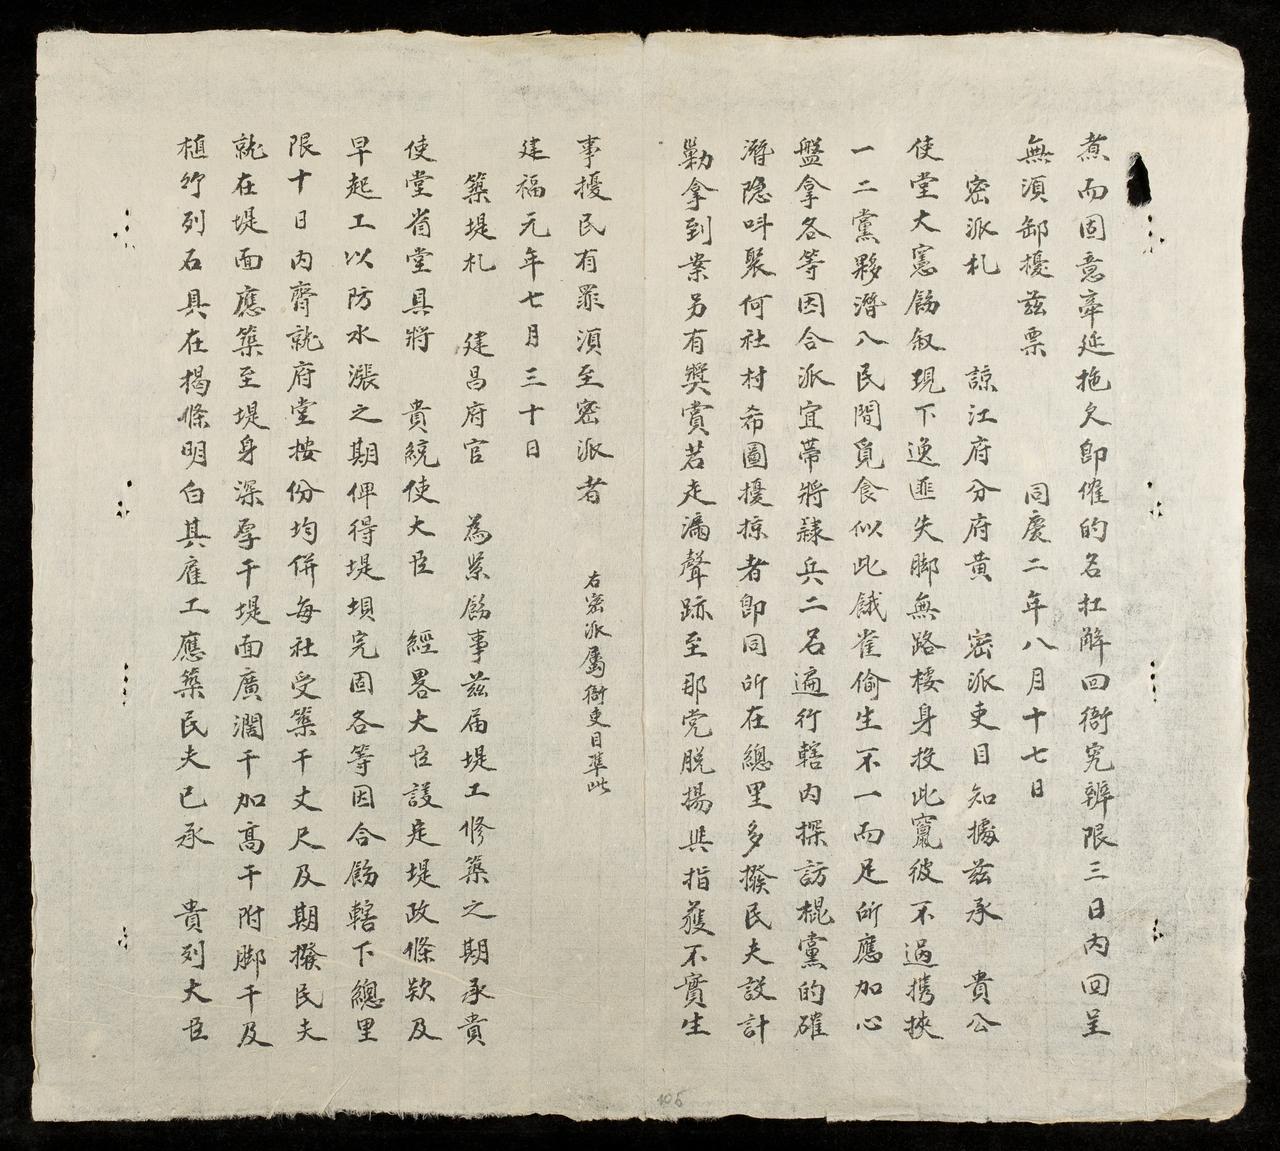 煮而固意牽延拖欠即催的名扛解回衙究辨限三日内回呈
無須卸擾茲票 同慶二年八月十七日
密派札 諒江府分府黄 密派吏目知據茲承 貴公
使堂大憲飭叙現下逸匪失脚無路棲身投此竄彼不過携挾
一二黨夥潛入民間覓食似此餓雀偷生不一而足所應加心
盤拿各等因合派宜帶將隸兵二名遍行轄内探訪棍黨的確
潛隐呌聚何社村希圖擾掠者即同所在總里多撥民夫設計
勦拿到案另有獎賞若走漏聲跡至那党脱揚與指獲不實生
事擾民有罪須至密派者 右密派屬衙吏目準此
建福元年七月三十日
築堤札 建昌府官 為緊飭事茲届堤工修築之期承貴
使堂省堂具將 貴統使大臣 經畧大臣設定堤政條欵及
早起工以防水漲之期俾得堤垻完固各等因合飭轄下總里
限十日内齊就府堂按份均併每社受築干丈尺及期撥民夫
就在堤面應築至堤身深厚干堤面廣濶干加高干附脚干及
植竹列石具在揭條明白其雇工應築民夫已承 貴列大臣